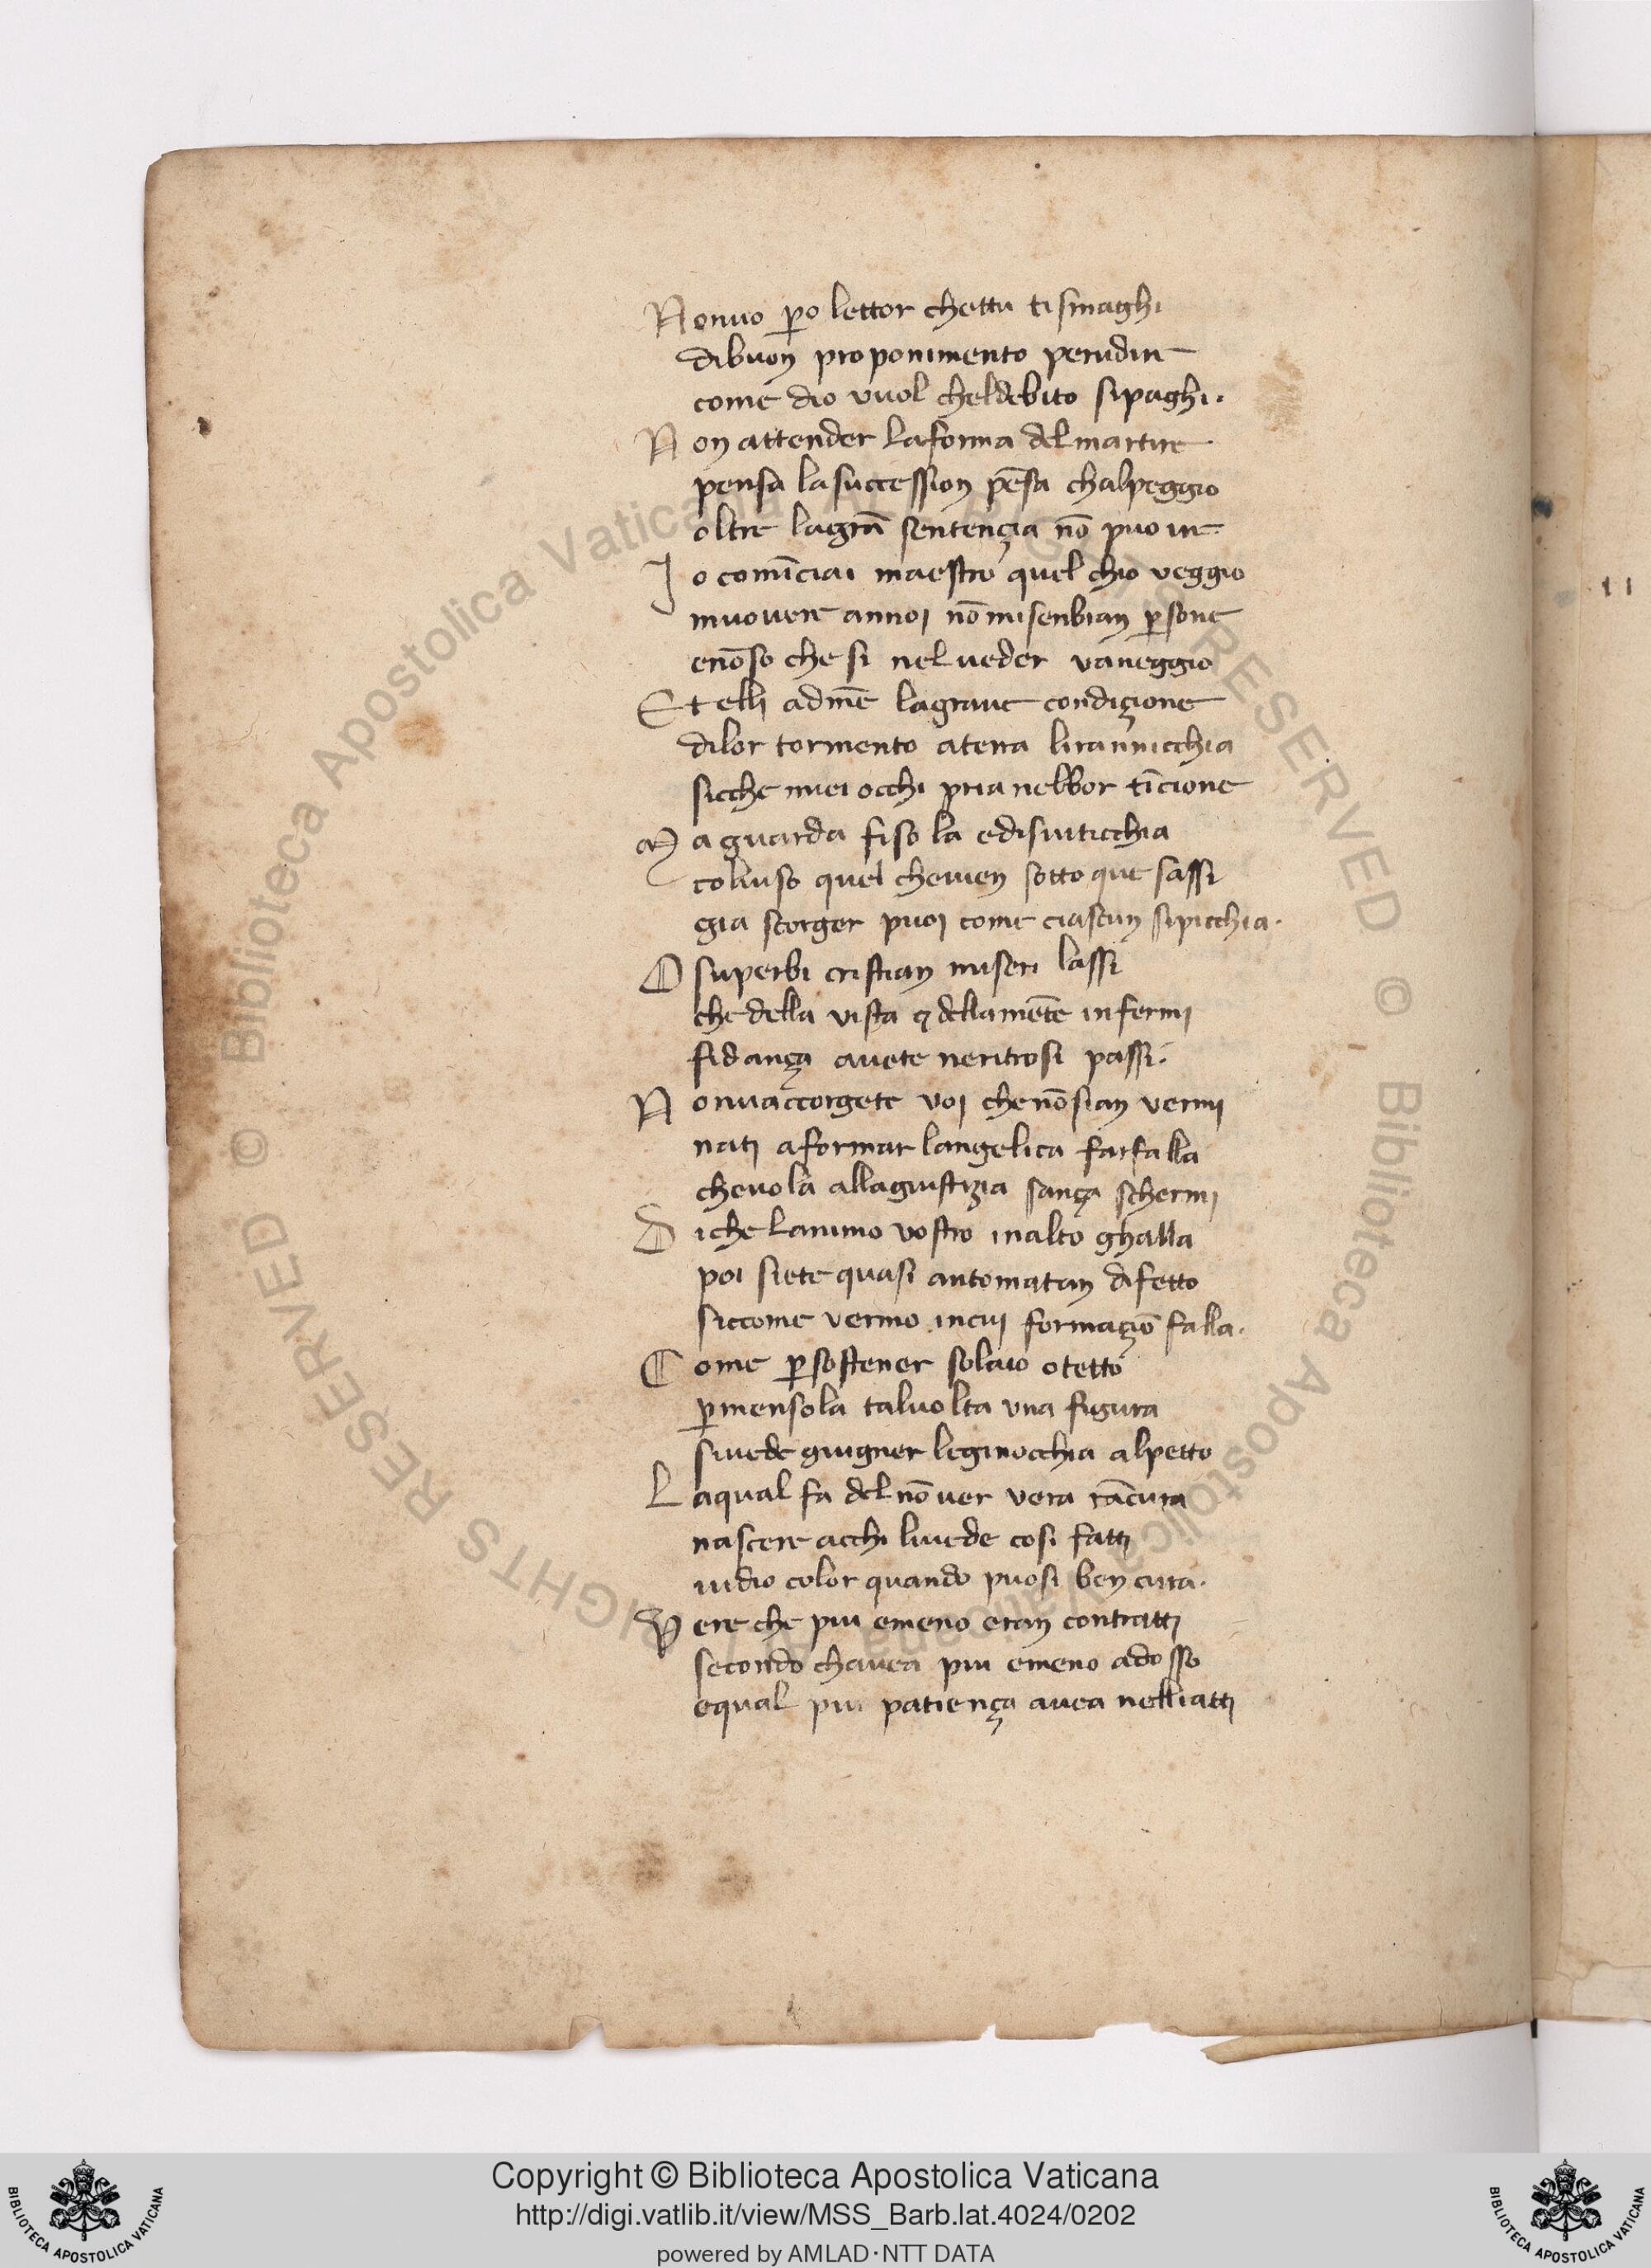 Nonuo p̲o lettor chettu tismaghi
dibuon proponimento perudire
come dio vuol cheldebito sipaghi.
Non attender laforma delmartire
pensa lasuccession pēsa chalpeggio
oltre lagrā sentençia nō puo ire.
Io comīciai maestro quel chio veggio
muouere annoi nō misenbian p̲sone
enōso che si nel ueder vaneggio
Et elli admē lagraue condiçione
dilor tormento aterra lirannicchia
sicche miei occhi pria nebbor tīcione
Ma guarda fiso la edisuiticchia
coluiso quel cheuien sotto que sassi
gia scorger puoi come ciascun sipicchia.
O superbi cristian miseri lassi
che della vista ⁊ dellamēte infermi
fidança auete neritrosi passi.
Nonuaccorgete voi chenōsian vermi
nati aformar langelica farfalla
cheuola allagiustizia sança schermi
Di che lanimo vostro inalto ghalla
poi siete quasi antomatan difetto
siccome vermo incui formaçiō falla.
Come p̲sostener solaio otetto
p̲mensola taluolta vna figura
siuede giugner leginocchia alpetto
Laqual fa del nō uer vera rācura
nascere acchi liuede cosi fatti
uidio color quando puosi ben cura.
Vere che piu emeno eran contratti
secondo chauea piu emeno adosso
equal piu patiença auea nelliatti
Copyright © Biblioteca Apostolica Vaticana
http://digi.vatlib.it/view/MSS_Barb.lat.4024/0202
powered by AMLAD·NTT DATA
BIBLIOTECA APOSTOLICA VATICANA
BIBLIOTECA APOSTOLICA VATICANA
© Biblioteca Apostolica Vaticana ALL RIGHTS RESERVED © Biblioteca Apostolica Vaticana ALL RIGHTS RESERVED